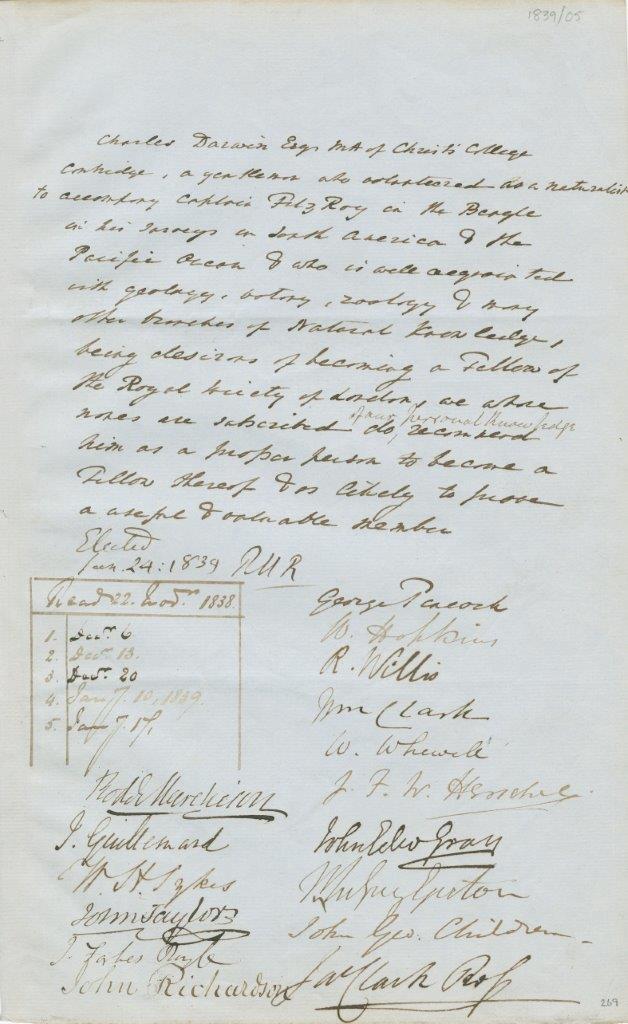 1839/05
Charles Darwin Esqr MA of Christ's College
Cambridge, a gentleman who volunteered as a naturalist
to accompany Captain Fitz Roy in the Beagle
in his surveys in South America & the
Pacific Ocean & who is well acquainted
with geology, botany, zoology & many
other branches of Natural Knowledge,
being desirous of becoming a Fellow of
the Royal Society of London, we whose
of our personal knowledge
names are subscribed do, recommend
him as a proper person to become a
Fellow thereof & as likely to prove
a useful & valuable member
Elected
Jan. 24: 1839
Read 22. Novr. 1838.
1. Decr. 6
2. Decr. 13.
3. Decr. 20
4. Jany. 10, 1839.
5. Jany. 17,
George Peacock
W. Hopkins
R. Willis
Wm Clark
W. Whewell
J. F. W. Herschel.
Rodk Murchison
J. Guillemard
W H Sykes
John Taylor
J. Forbes Royle
John Richardson
John Edwd Gray
John Geo. Children
Jas Clark Ross
269